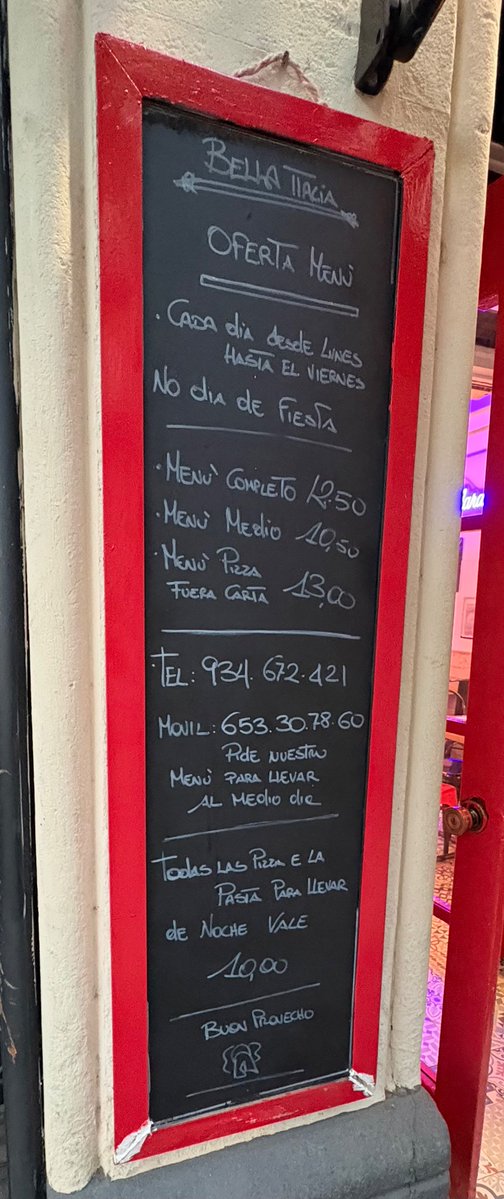 BELLA ITALIA
OFERTA MENÙ
· CADA dia desde LUNES
HASTA EL VIERNES
NO DIA DE FIESTA
· MENÙ COMPLETO 12.50
· MENÙ MEDIO 10,50
· MENÙ PIZZA
FUERA CARTA 13,00
TEL: 934.672.421
MOVIL: 653.30.78.60
PIDE NUESTRA
MENÙ PARA LLEVAR
AL MEDIO DIE
TODAS LAS PIZZA E LA
PASTA PARA LLEVAR
de NOCHE VALE
10,00
BUEN PROVECHO